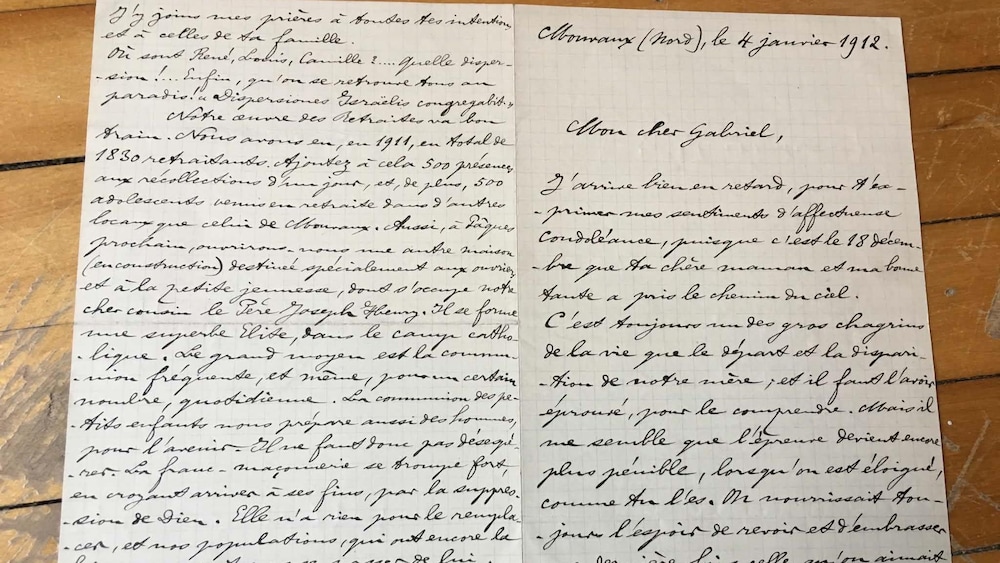 J'y joins mes prières à toutes tes intentions,
et à celles de ta famille.
Où sont René, Louis, Camille ?.... Quelle disper-
sion !... Enfin, qu'on se retrouve tous au
paradis ! « Dispersiones Israëlis congregabit »
Notre œuvre des Retraites va bon
train. Nous avons eu, en 1911, un total de
1830 retraitants. Ajoutez à cela 500 présences
aux récollections d'un jour, et, de plus, 500
adolescents venus en retraite dans d'autres
locaux que celui de Mouvaux. Aussi, à Pâques
prochain, ouvrirons-nous une autre maison
(en construction) destinée spécialement aux ouvriers
et à la petite jeunesse, dont s'occupe notre
cher cousin le Père Joseph Thery. Il se forme
une superbe Elite, dans le camp catho-
-lique. Le grand moyen est la commu-
-nion fréquente, et même, pour un certain
nombre quotidienne. La communion des pe-
-tits enfants nous prépare aussi des hommes,
pour l'avenir. Il ne faut donc pas désespé-
-rer. La franc-maçonnerie se trompe fort,
en croyant arriver à ses fins, par la suppres-
-sion de Dieu. Elle n'a rien pour le rempla-
-cer, et nos populations, qui ont encore la
passer de lui
Mouvaux (Nord), le 4 janvier 1912.
Mon cher Gabriel,
J'arrive bien en retard, pour t'ex-
-primer mes sentiments d'affectueuse
condoléance, puisque c'est le 18 décem-
-bre que ta chère maman et ma bonne
tante a pris le chemin du ciel.
C'est toujours un des gros chagrins
de la vie que le départ et la dispari-
-tion de notre mère ; et il faut l'avoir
éprouvé, pour le comprendre. Mais il
me semble que l'épreuve devient encore
plus pénible, lorsqu'on est éloigné,
comme tu l'es. On nourrissait tou-
-jours l'espoir de revoir et d'embrasser
celle qu'on aimait